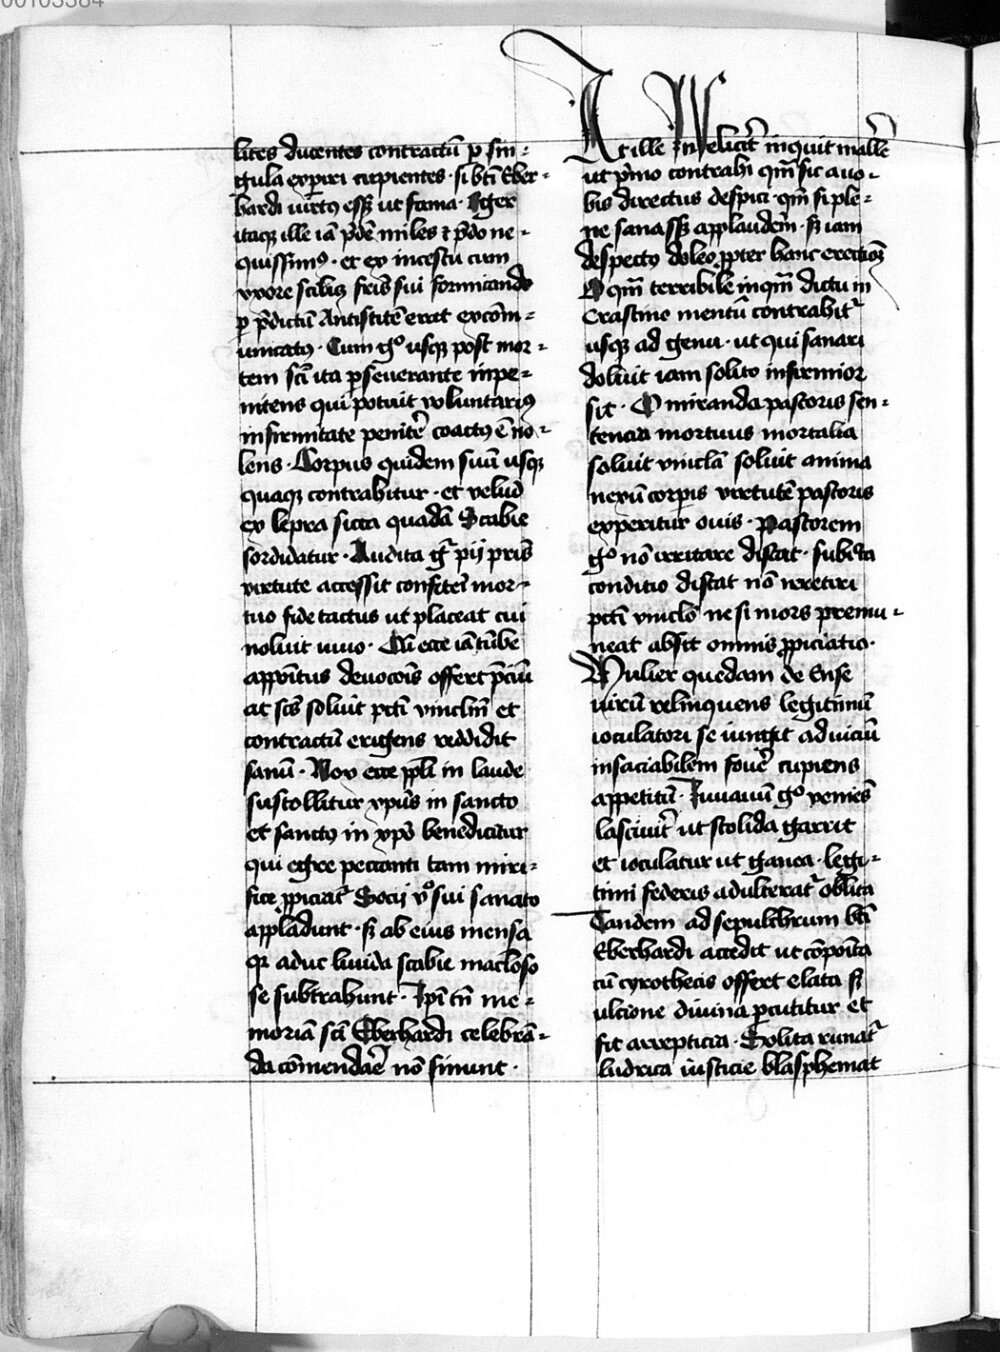 00103384
lites ducentes contractū ꝑ sin-
gula exꝑiri cupientes · si bt̄i Eber-
hardi uirtꝰ ess; ut fama · Iger
itaqꝫ ille iā p̄dē miles ⁊ p̄do ne-
quissimꝰ · et ex incestu cum
vxore scilicꝫ fr̄is sui fornicando
ꝑ p̄dictū Antistitē erat excōm-
unicatꝰ · Cum gͦ usqꝫ post mor-
tem sc̄i ita ꝑseuerante inpe-
nitens qui potuit voluntariꝰ
infirmitate penitē coactꝰ ē no-
lens · Corpus quidem suū usqꝫ
quaqꝫ contrahitur · et velud
ex lepra sicca quadā Scabie
sordidatur · Audita gͥ pij pr̄is
virtute accessit confiteri mor-
tuo fide tactus ut placeat cui
noluit viuo · Cū ecce iā tūbe
appōitus deuocōis offert p̄ciū
at sc̄s soluit pctī vinclm̄ et
contractū erigens reddidit
sanū · Vox ecce ppl̄i in laude
sustollitur xp̄us in sancto
et sanctꝰ in xpō benedicitur
qui egre peccanti tam miri-
fice ꝓpiciat᷑ Socij v̊ sui sanato
appladunt · sꝫ ab eius mensa
qꝛ aduc liuida scabie maclōso
se subtrahunt · Ip̄i tn̄ me-
moriā sc̄i Eberhardi celebrā-
da cōmendaē nō sinunt ·
At ille Infelicit᷑ inquit malle
ut p̄mo contrahi qm̄ sic a uo-
bis directus despici · qm̄ si ple-
ne sanass; applauderē · sꝫ iam
despectꝰ doleo ꝓpter hanc erectōꝫ
O qm̄ terribile inqm̄ dictu in
Crastino mentū contrahit᷑
usqꝫ ad genu · ut qui sanari
doluit iam solito infirmior
sit · O miranda pastoris sen-
tencia mortuus mortalia
soluit vincla soluit anima
nexū corpis virtutē pastoris
experitur ouis · Pastorem
gͦ nō irritare discat · subiecta
conditio discat nō irretiri
pctī vinclō ne si mors premu-
neat absit omnis ꝓpiciatio ·
Mulier quedam de Ense
uirū relinquens legitimū
ioculatori se iungit ad uiciū
insaciabilem fouē cupiens
appetitū · Iuuauū gͦ veniēs
lasciuit᷑ ut stolida garrit
et ioculatur ut ganea · legi-
timi federis adulterat᷑ oblita
Tandem ad sepulchrum bt̄i
Eberhardi accedit ut cōpoīta
cū cyrothecis offert elata sꝫ
ultione diuina ꝑcutitur et
fit arrepticia · Solita runat᷑
ludrica iusticie blasphemat